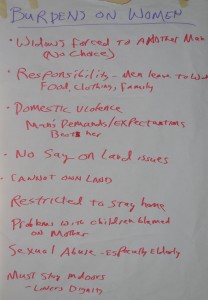 BURDENS ON WOMEN
• Widows forced to Another Man
(No Choice)
• Responsibility - Men leave to
Food, Clothing, Family
• Domestic Violence
Mans Demands/Expectations
Beats her
• No Say on Land issues
• CANNOT OWN LAND
Restricted to Stay home
Problems with children blamed
on Mother
Sexual Abuse - Especially Elderly
Must Stay indoors
- Lowers Dignity